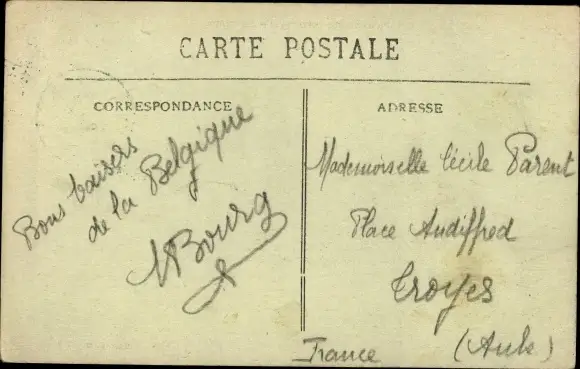 CARTE POSTALE
CORRESPONDANCE
Bons baisers
de la Belgique
Bourg
ADRESSE
Mademoiselle Cécile Parent
Place Audiffred
Troyes
(Aube)
France